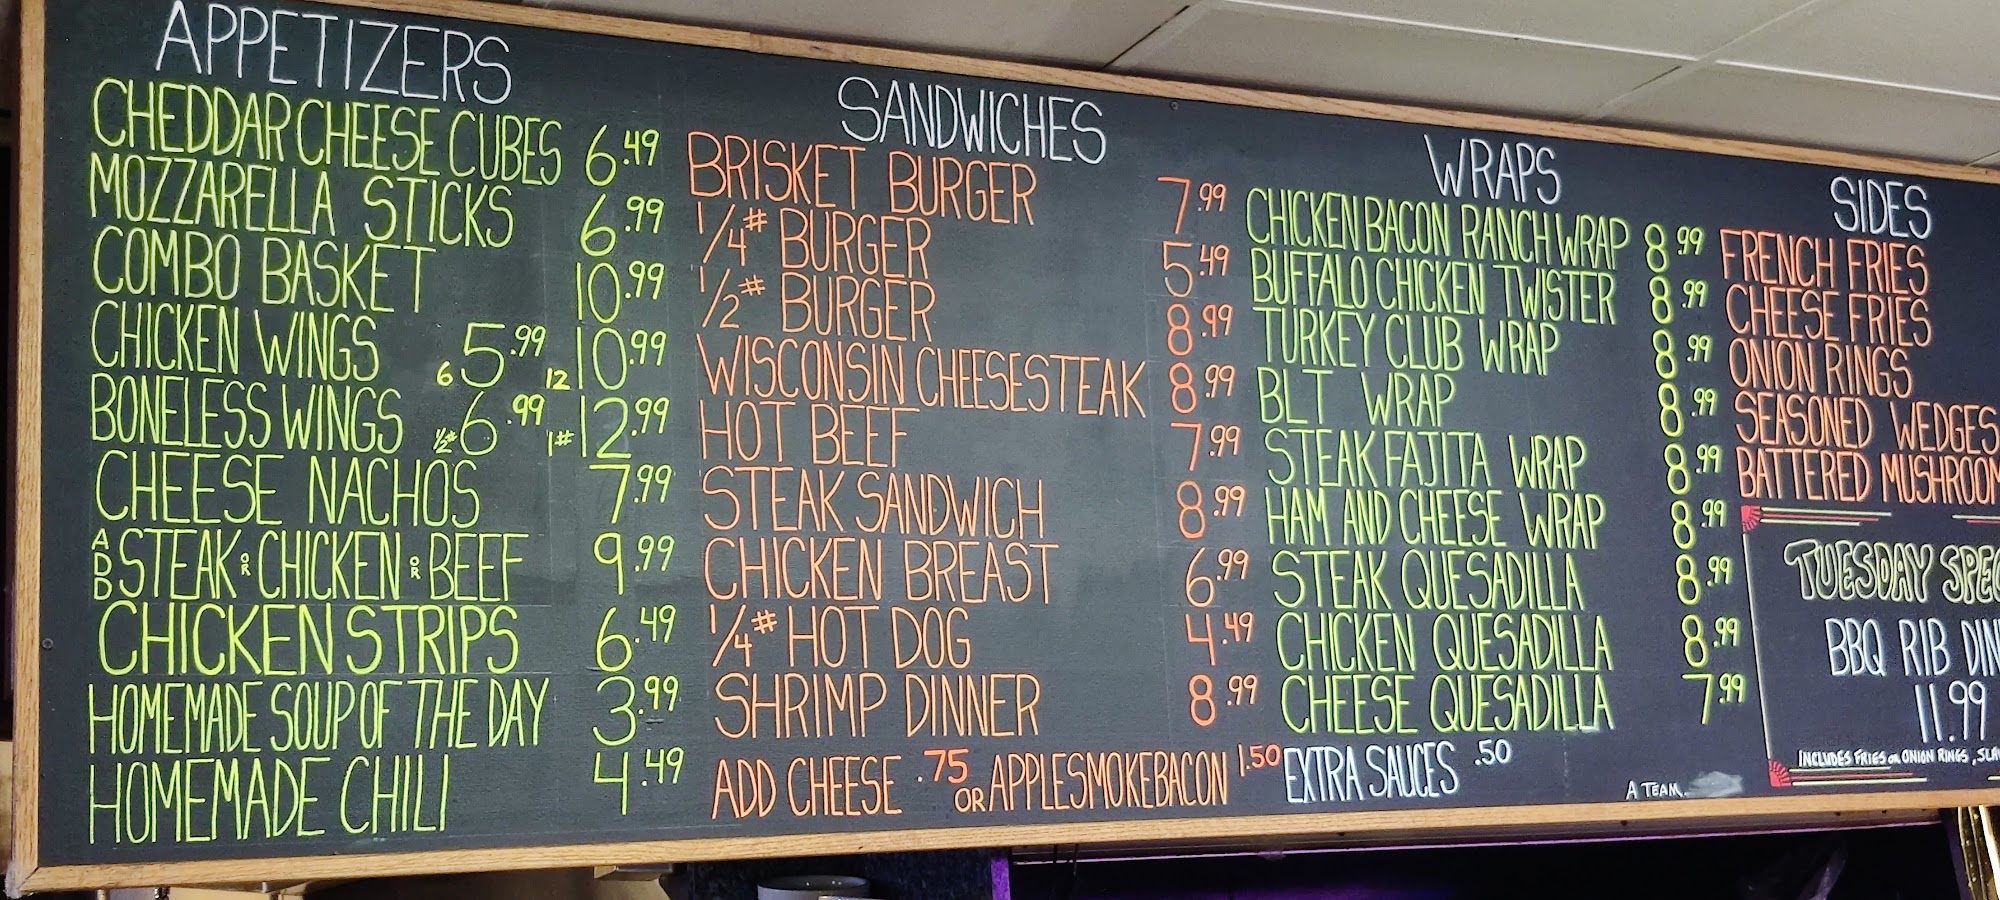 APPETIZERS
CHEDDAR CHEESE CUBES 6.49
MOZZARELLA STICKS 6.99
COMBO BASKET 10.99
CHICKEN WINGS 6 5.99 12 10.99
BONELESS WINGS 1/2# 6.99 1# 12.99
CHEESE NACHOS 7.99
ADD STEAK OR CHICKEN OR BEEF 9.99
CHICKEN STRIPS 6.49
HOMEMADE SOUP OF THE DAY 3.99
HOMEMADE CHILI 4.49
SANDWICHES
BRISKET BURGER 7.99
1/4# BURGER 5.49
1/2# BURGER 8.99
WISCONSIN CHEESESTEAK 8.99
HOT BEEF 7.99
STEAK SANDWICH 8.99
CHICKEN BREAST 6.99
1/4# HOT DOG 4.49
SHRIMP DINNER 8.99
ADD CHEESE .75 OR APPLESMOKE BACON 1.50
WRAPS
CHICKEN BACON RANCH WRAP 8.99
BUFFALO CHICKEN TWISTER 8.99
TURKEY CLUB WRAP 8.99
BLT WRAP 8.99
STEAK FAJITA WRAP 8.99
HAM AND CHEESE WRAP 8.99
STEAK QUESADILLA 8.99
CHICKEN QUESADILLA 8.99
CHEESE QUESADILLA 7.99
EXTRA SAUCES .50
A TEAM.
SIDES
FRENCH FRIES
CHEESE FRIES
ONION RINGS
SEASONED WEDGES
BATTERED MUSHROOM
TUESDAY SPEC
BBQ RIB DIN
11.99
INCLUDES FRIES OR ONION RINGS, SLA